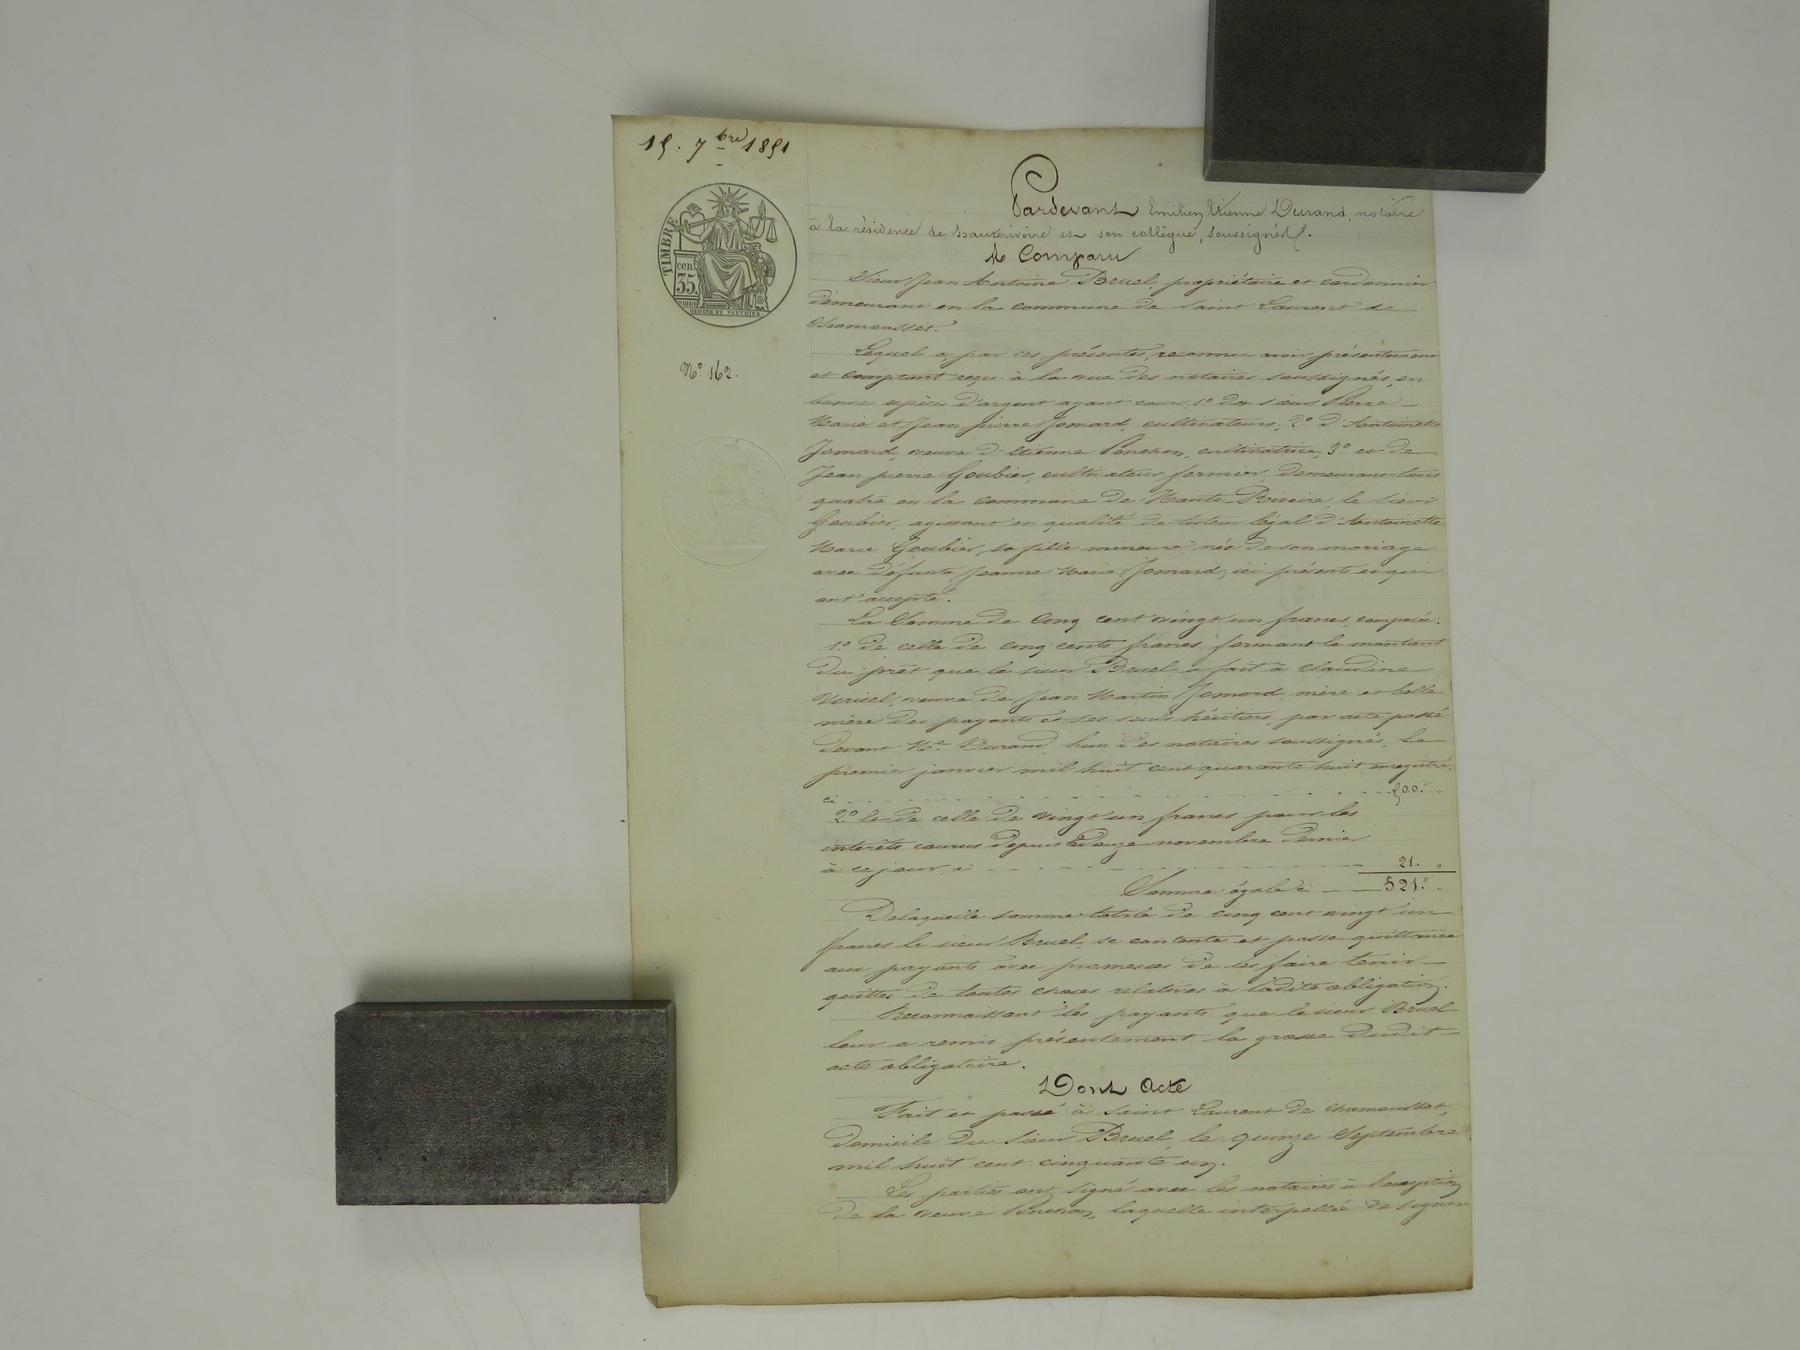 15. 7bre 1851
TIMBRE
cen.
35.
No. 162.
Pardevant Emilien Etienne Durand, notaire
à la résidence de hauterivoire et son collègue, soussignés.
A Comparu
Sieur Jean Antoine Bruel, propriétaire et cordonnier
demeurant en la commune de Saint Laurent de
Chamousset.
Lequel a, par ces présentes, reconnu avoir présentement
et comptant reçu à la vue des notaires soussignés, en
bonnes espèces d'argent ayant cours, 1o des sieurs Pierre
Marie et Jean pierre Jomard, cultivateurs, 2o d'Antoinette
Jomard, veuve d'Etienne Ponchon, cultivatrice, 3o et de
Jean pierre Goubier, cultivateur fermier, demeurant tous
quatre en la commune de Haute-Rivoire, le sieur
Goubier, agissant en qualité de tuteur légal d'Antoinette
Marie Goubier, sa fille mineure, née de son mariage
avec défunte Jeanne Marie Jomard, ici présents et qui
ont accepté.
La Somme de Cinq cent vingt un francs, composée:
1o de celle de cinq cents francs, formant le montant
du prêt que le sieur Bruel, a fait à claudine
veuve de Jean Martin Jomard, mère et belle
mère des payants et ses seuls héritiers, par acte passé
devant Me Durand, l'un des notaires soussignés, le
premier janvier mil huit cent quarante huit, enregistré.
ci 500.
2o Et de celle de vingt un francs pour les
intérêts courus depuis le onze novembre dernier
à ce jour, ci 21.
Somme égale ci 521.
De laquelle somme totale de cinq cent vingt un
francs le sieur Bruel, se contente et passe quittance
aux payants avec promesses de les faire tenir
quittes de toutes choses relatives à ladite obligation.
Reconnaissant les payants que le sieur Bruel
leur a remis présentement la grosse dudit
acte obligatoire.
Dont Acte
Fait et passé à Saint Laurent de chamousset,
domicile du sieur Bruel, le quinze Septembre
mil huit cent cinquante un.
Les parties ont signé avec les notaires à l'exception
de la veuve Ponchon, laquelle interpellée de signer